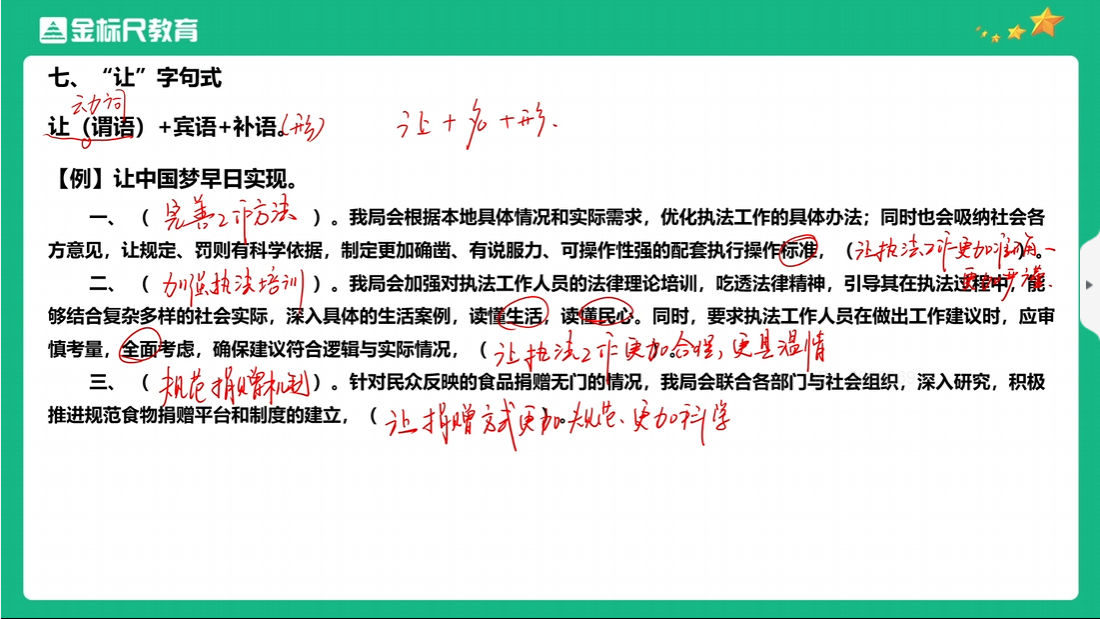 金标尺教育
七、“让”字句式
动词
让（谓语）+宾语+补语。(形) 让+名+形.
【例】让中国梦早日实现。
一、（ 完善工作方法 ）。我局会根据本地具体情况和实际需求，优化执法工作的具体办法；同时也会吸纳社会各
方意见，让规定、罚则有科学依据，制定更加确凿、有说服力、可操作性强的配套执行操作标准，（让执法工作更加准确、）。
更加严谨
二、（ 加强执法培训 ）。我局会加强对执法工作人员的法律理论培训，吃透法律精神，引导其在执法过程中，能
够结合复杂多样的社会实际，深入具体的生活案例，读懂生活，读懂民心。同时，要求执法工作人员在做出工作建议时，应审
慎考量，全面考虑，确保建议符合逻辑与实际情况，（ 让执法工作更加合理，更具温情 ）。
三、（ 规范捐赠机制 ）。针对民众反映的食品捐赠无门的情况，我局会联合各部门与社会组织，深入研究，积极
推进规范食物捐赠平台和制度的建立，（ 让捐赠方式更加规范、更加科学 ）。